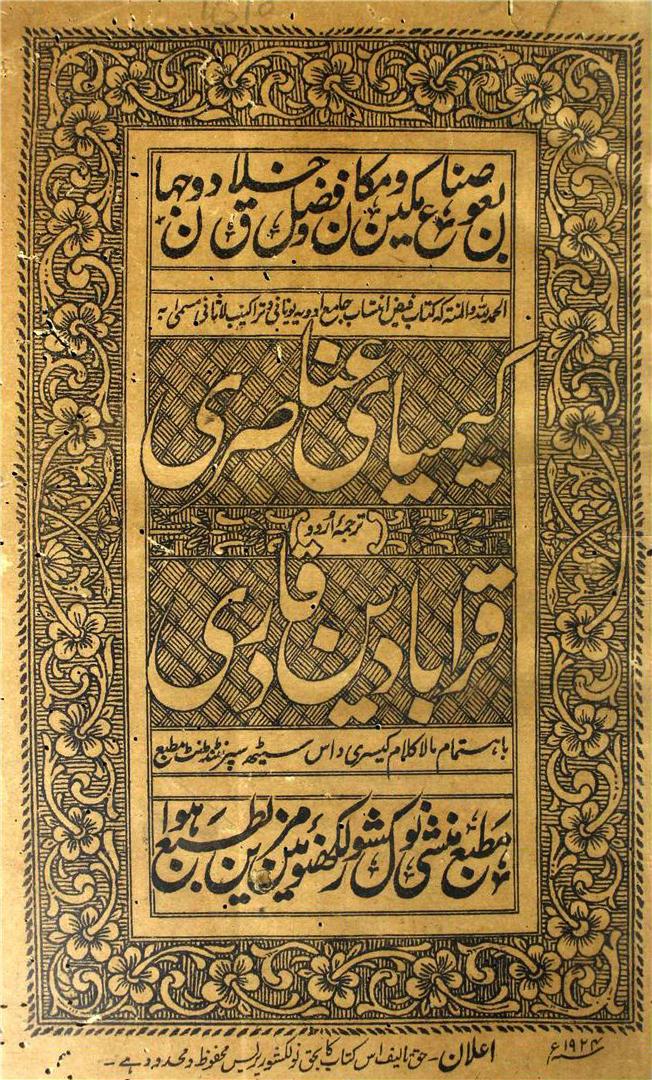 بعون صناع مکین و مکان و فضل خلاق دو جہان
الحمد للہ والمنۃ کہ کتاب فیض انتساب جامع ادویہ یونانی و تراکیب لاثانی مسمی بہ
کیمیای عناصری
ترجمۂ اُردو
قرابادین قادری
باہتمام مالا کلام کیسری داس سیٹھ سپرنٹنڈنٹ مطبع
مطبع منشی نولکشور لکھنؤ مین مزین بطبع ہوا
۱۹۲۴ء
اعلان - حق تالیف اس کتاب کا بحق نولکشور پریس محفوظ و محدود ہے -